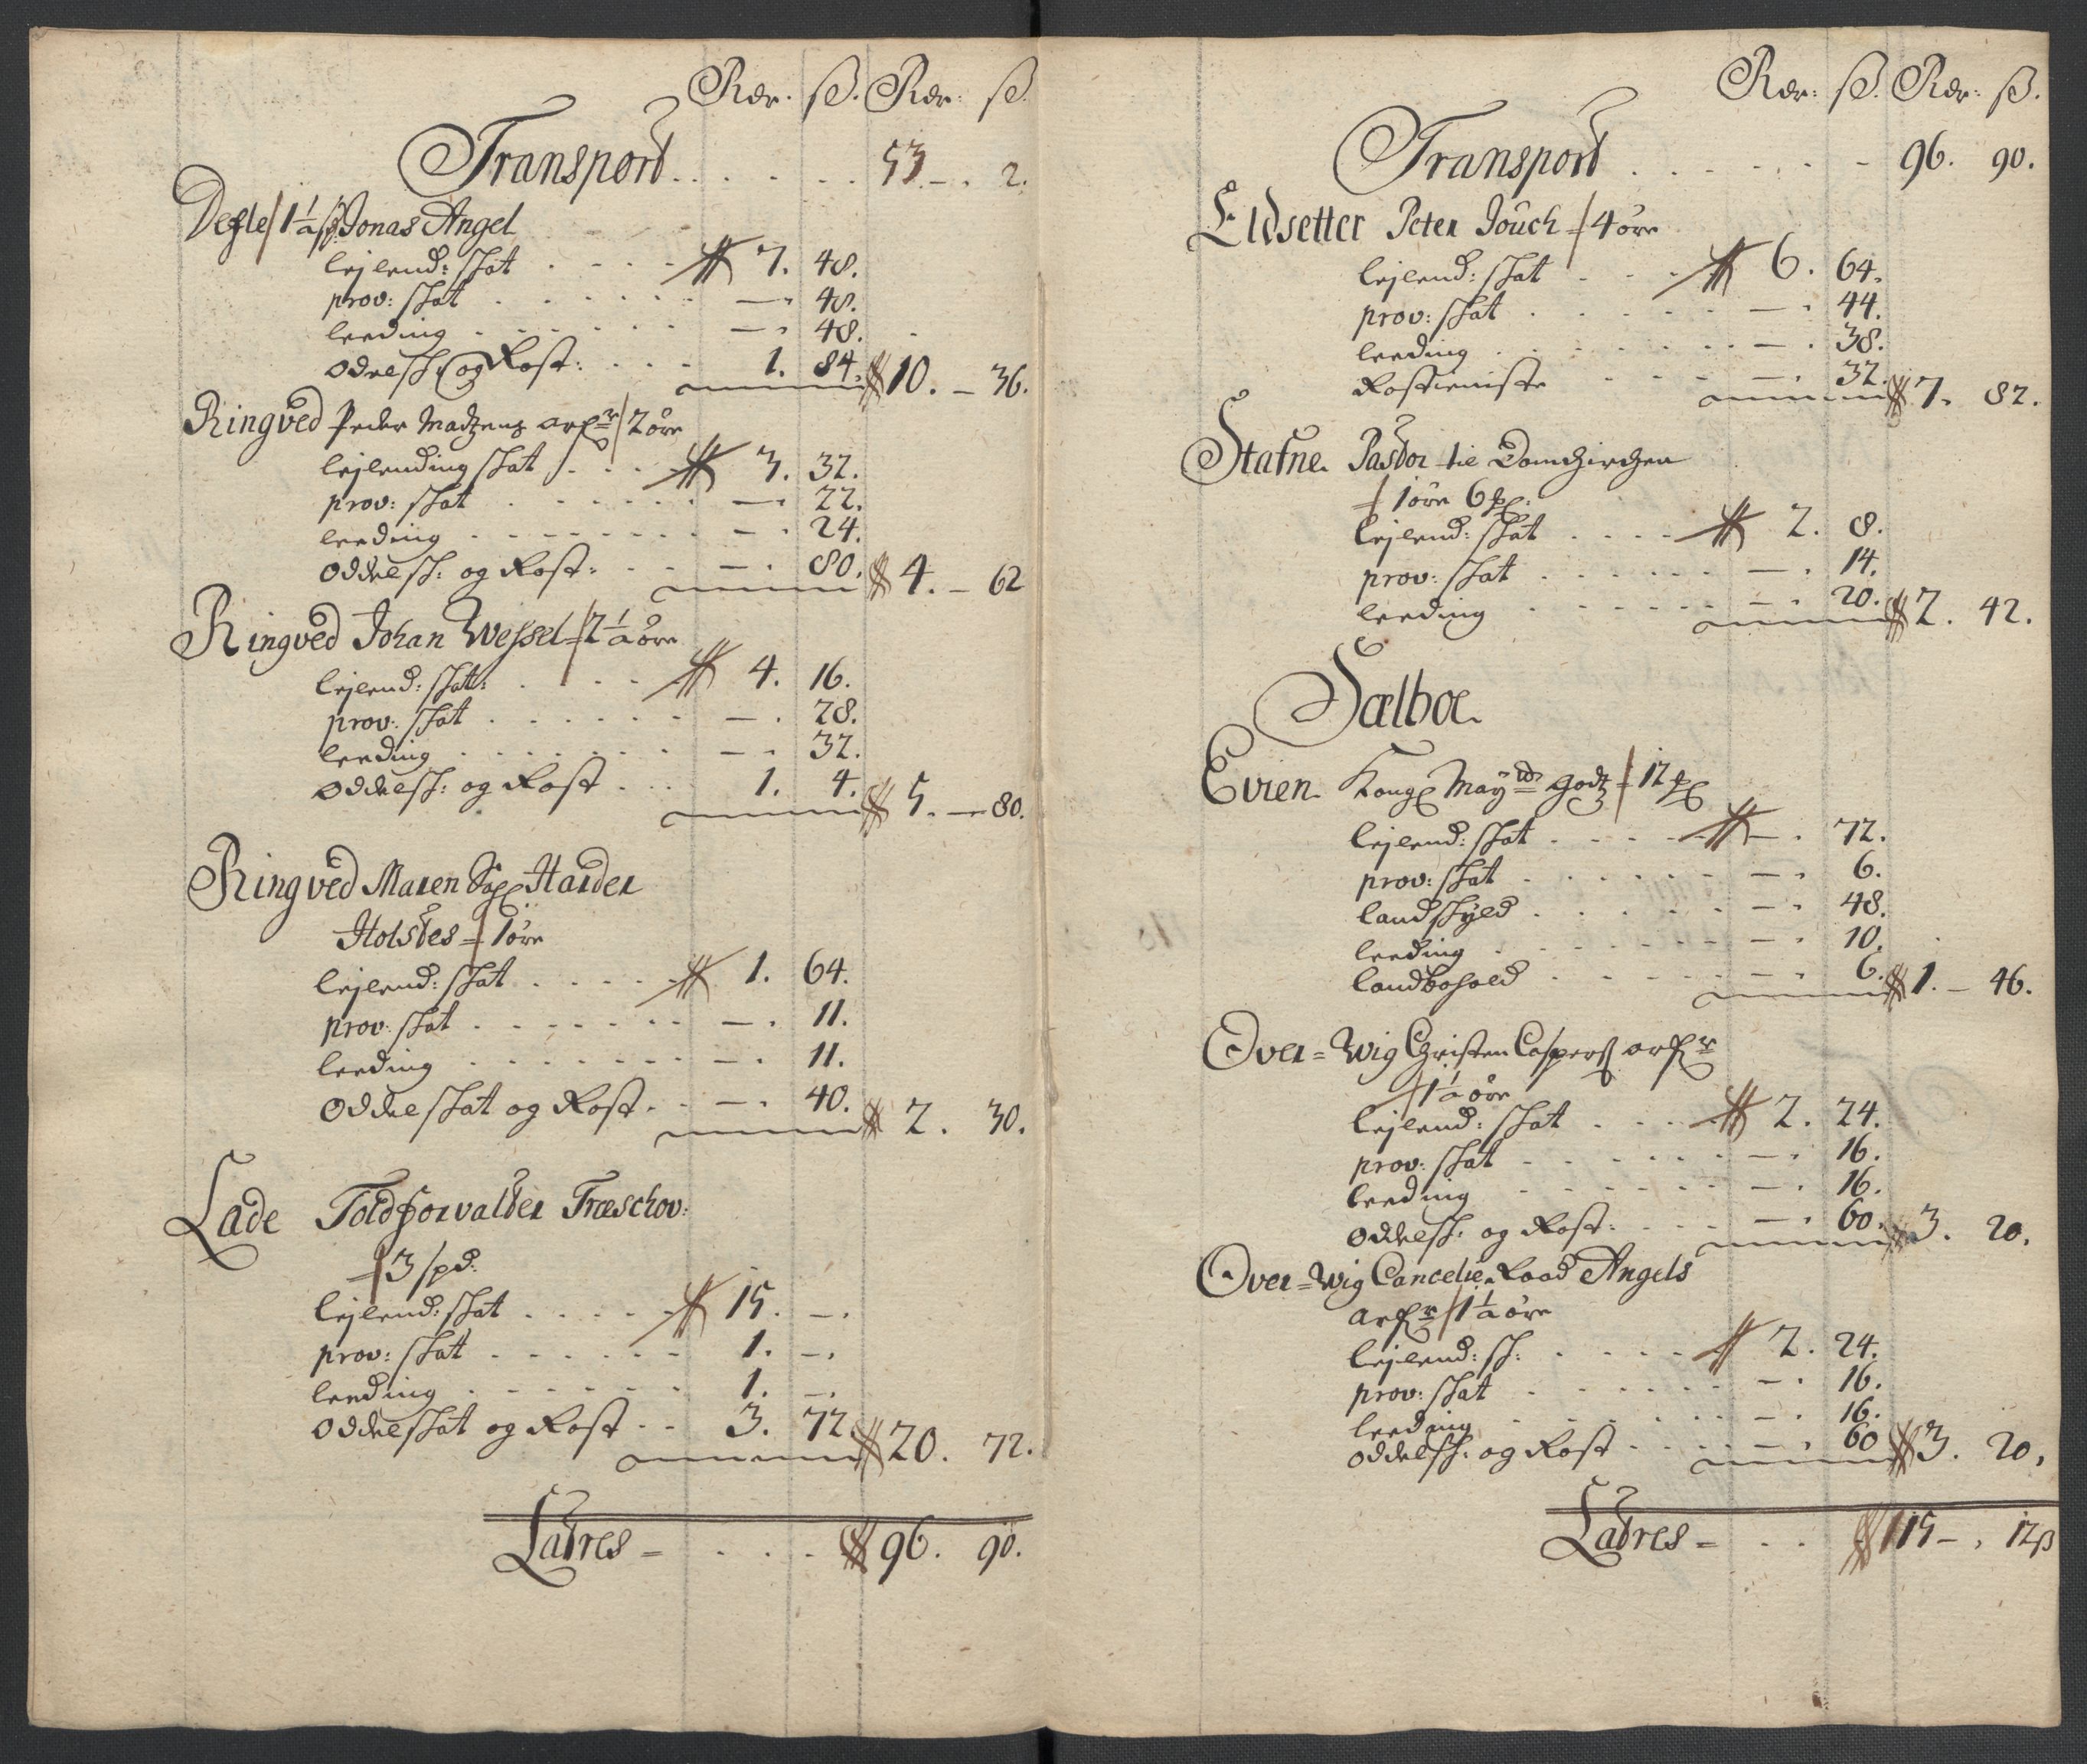 Rdr. ß. Rdr: ß.
Transport . . . . . . 53. – . 2.
Desle / 1 1/2 sp: Jonas Angel
lejlend: skat . . . . 7. 48.
prov: skat . . . . . . — . 48.
leeding . . . . . . — . 48.
odelsk: og Rost: . . . 1. 84. 10. – 36.
Ringved Peder Madzens arf: / 2 öre
lejlending skat . . . 3. 32.
prov: skat . . . . . . — . 22.
leeding . . . . . . . — . 24.
oddelsk: og Rost: . . — . 80. 4. – 62
Ringved Johan Wessel = / 2 1/2 öre
lejlend: skat: . . . . 4. 16.
prov: skat . . . . . . — . 28.
leeding . . . . . . . — . 32.
oddelsk: og Rost . . . 1. 4. 5. — 80.
Ringved Maren Sal. Harder
Holstes = / 1 öre
lejlend: skat . . . . 1. 64.
prov: skat . . . . . . . — . 11.
leeding . . . . . . . — . 11.
Oddelskat og Rost . . — . 40. 2. 30.
Lade Toldforvalter Træschov:
/ 3 spd:
lejlend: skat . . . . 15. — .
prov: skat . . . . . . 1. — .
leeding . . . . . . 1. — .
oddelskat og Rost . . 3. 72. 20. 72.
Latres = . . . 96. 90.
Rdr: ß. Rdr: ß.
Transport . . . . . – 96. 90.
Eldsetter Peter Jouch = / 4 öre
lejlend: skat . . . 6. 64.
prov: skat . . . . . — . 44.
leeding . . . . . . . — . 38.
Rostieniste . . . — . 32. 7. 82.
Stafne Pastor til Domchirchen
/ 1 öre 6
lejlend: skat . . . . 2. 8.
prov: skat . . . . . . — . 14.
leeding . . . . . . — . 20. 2. 42.
Sælboe
Evien Kong May godz = / 12
lejlend: skat . . . . — . 72.
prov: skat . . . . . . — . 6.
landskyld . . . . . — . 48.
leeding . . . . . . . — . 10.
landbohold . . . . . — . 6. 1. – 46.
Over = Wig Christen Caspers arf:
/ 1 1/2 öre
lejlend: skat . . . . 2. 24.
prov: skat . . . . . . — . 16.
leeding . . . . . . — . 16.
oddelsk: og Rost: . . . — . 60. 3. 20.
Over = Wig Cancelie Raad Angels
arf: / 1 1/2 öre
lejlend: sk: . . . . 2. 24.
prov: skat . . . . . . — . 16.
leeding . . . . . . — . 16.
oddelsk: og Rost . . . . — . 60 3. 20.
Latres = . . 115 – . 12 ß